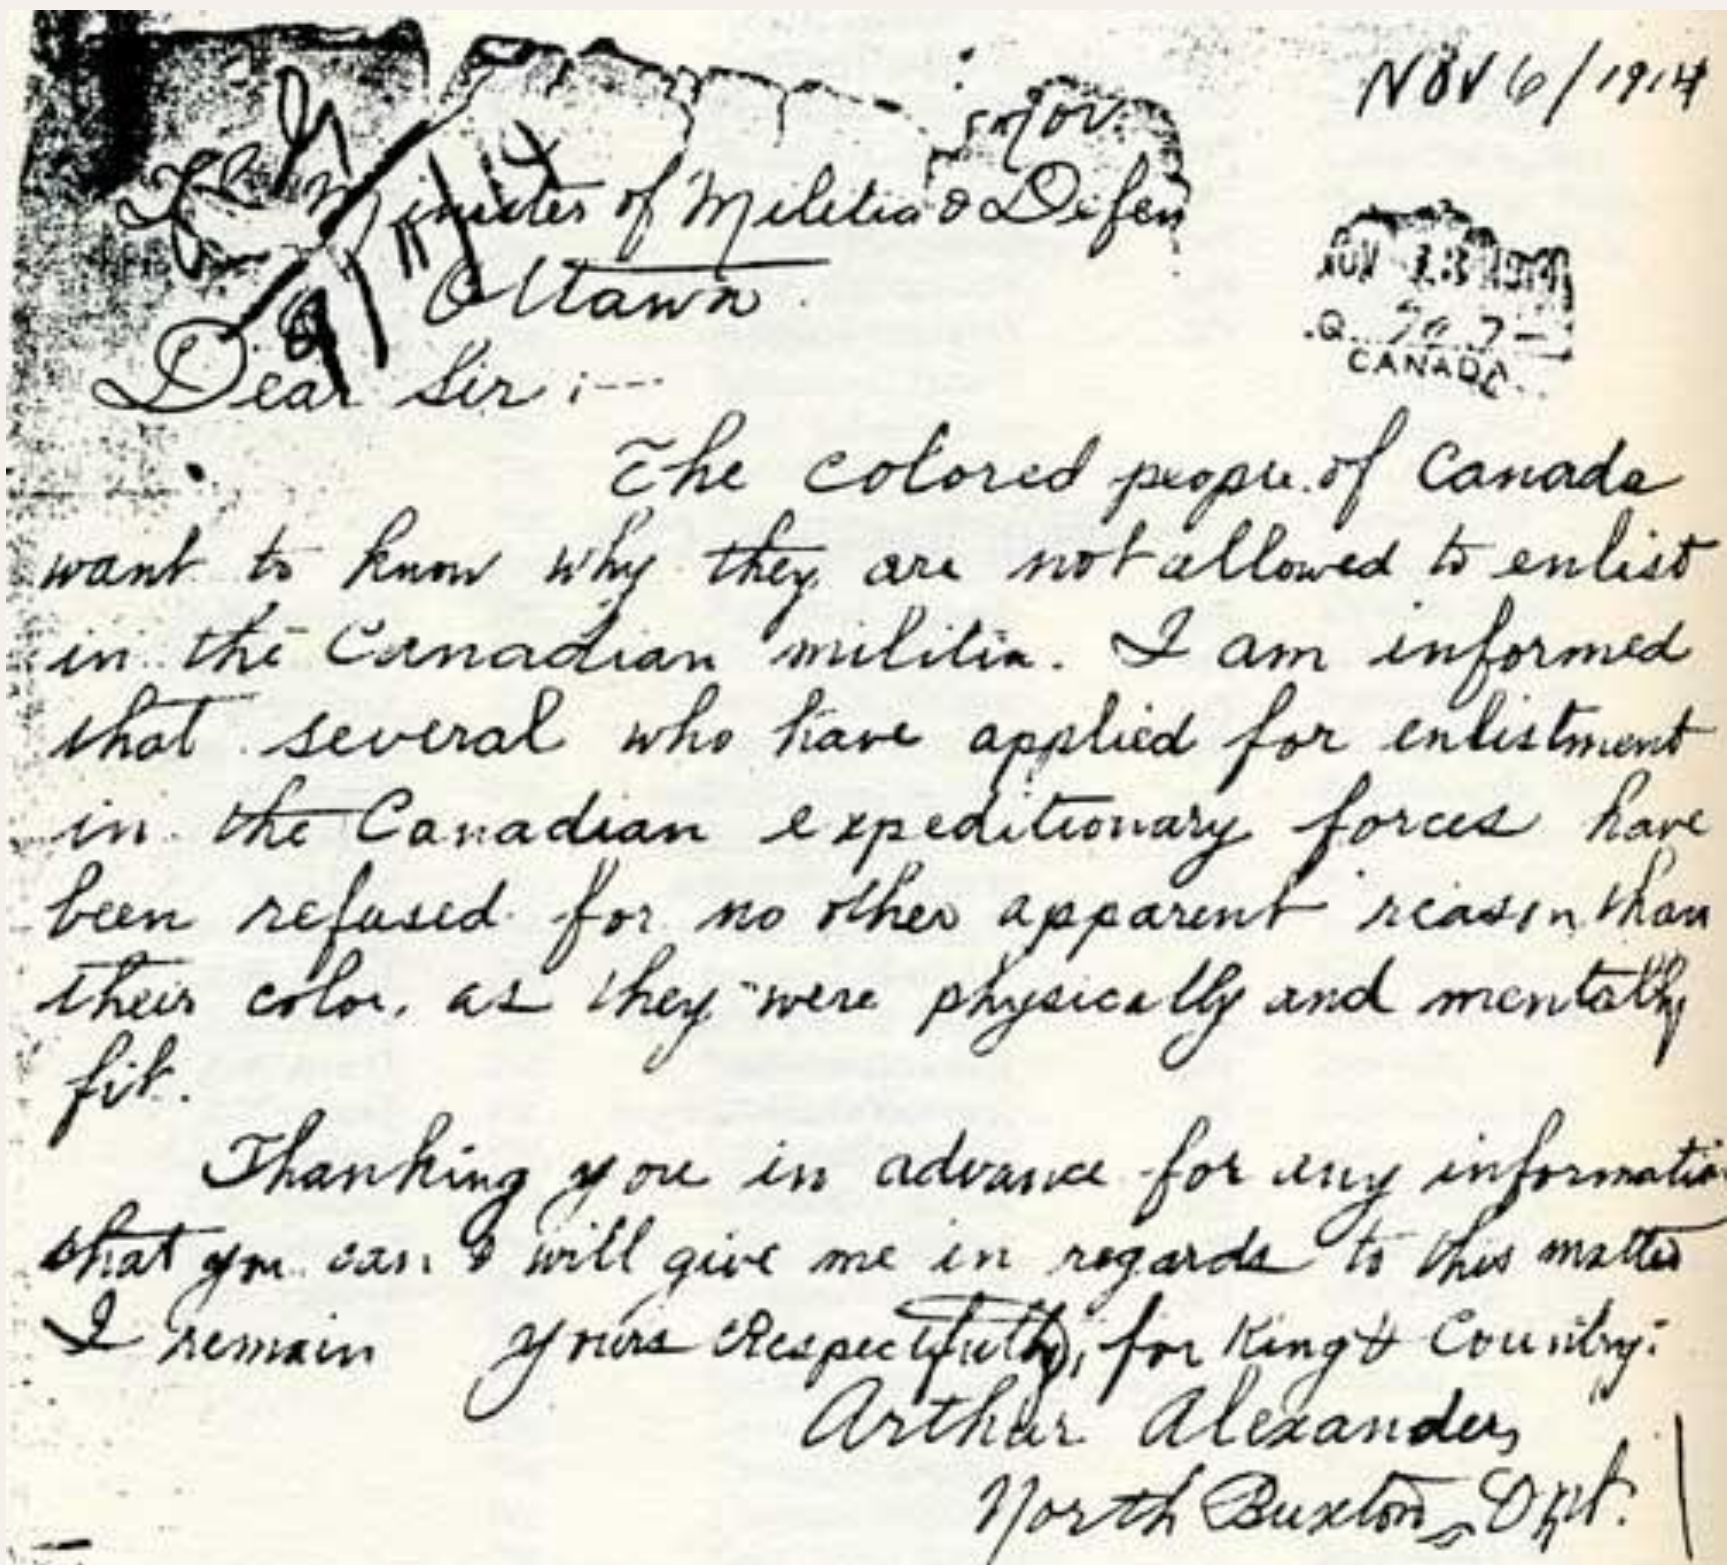 Nov 6/1914
Minister of Militia & Defen
Ottawa
CANADA
Dear Sir :---
The colored people of Canada
want to know why they are not allowed to enlist
in the Canadian militia. I am informed
that several who have applied for enlistment
in the Canadian expeditionary forces have
been refused for no other apparent reason than
their color, as they were physically and mentally
fit.
Thanking you in advance for any informatio
that you can & will give me in regards to this matter
I remain yours Respectfully, for King & Country.
Arthur Alexander,
North Buxton, Ont.